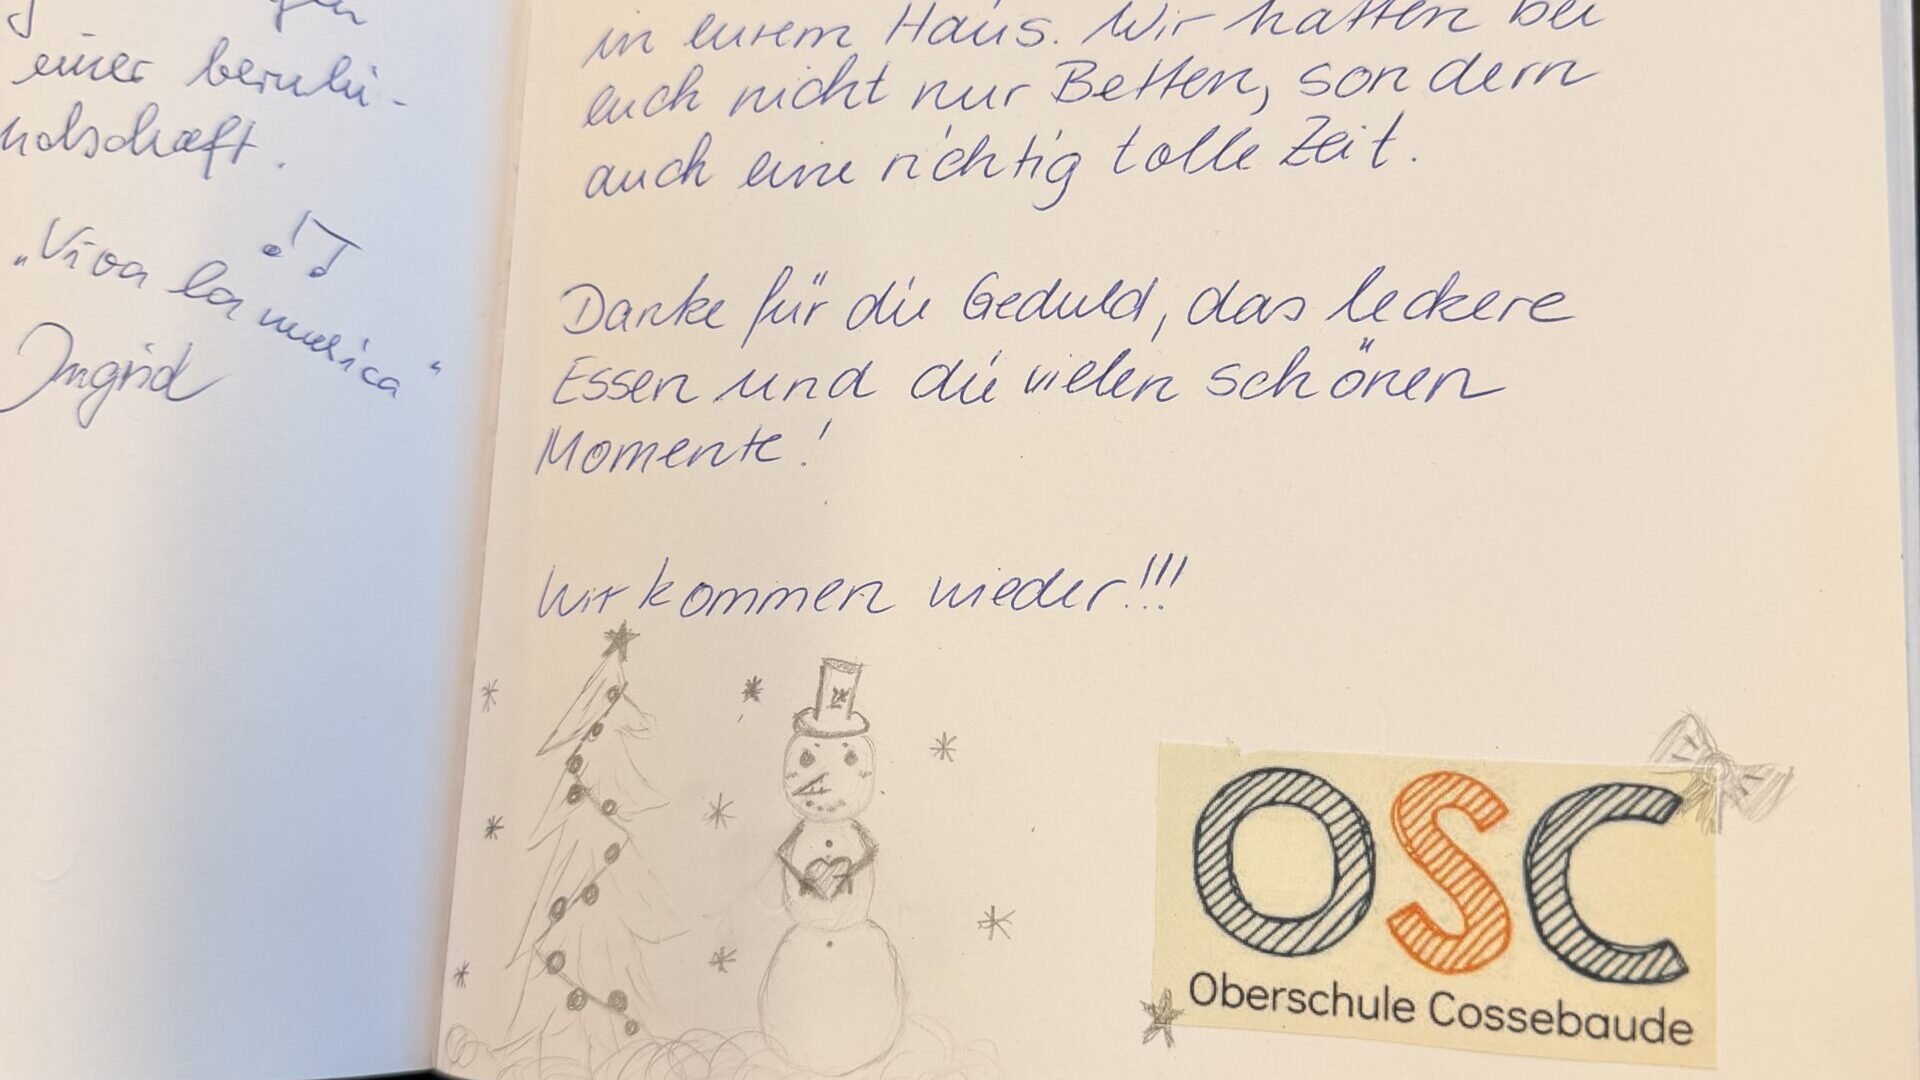 einer berüh-
„Viva la musica“
Ingrid
in eurem Haus. Wir hatten bei
euch nicht nur Betten, sondern
auch eine richtig tolle Zeit.
Danke für die Geduld, das leckere
Essen und die vielen schönen
Momente!
Wir kommen wieder!!!
OSC
Oberschule Cossebaude